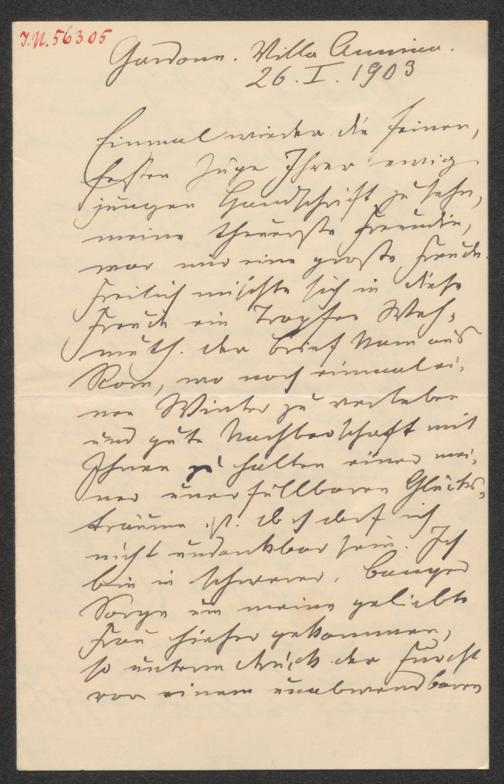 J.N. 56305
Gardone. Villa Annina.
26. I. 1903
Einmal wieder die feinen,
festen Züge Ihrer ewig
jungen Handschrift zu sehn,
meine theuerste Freundin,
war mir eine große Freude.
Freilich mischte sich in diese
Freude ein Tropfen Weh-
muth. der Brief kam aus
Rom, wo noch einmal ei-
nen Winter zu verleben
und gute Nachbarschaft mit
Ihnen zu halten einer mei-
ner unerfüllbaren Glücks-
träume ist. doch darf ich
nicht undankbar sein. Ich
bin in schwerer, banger
Sorge um meine geliebte
Frau hieher gekommen,
so unterm Druck der Furcht
vor einem unabwendbaren